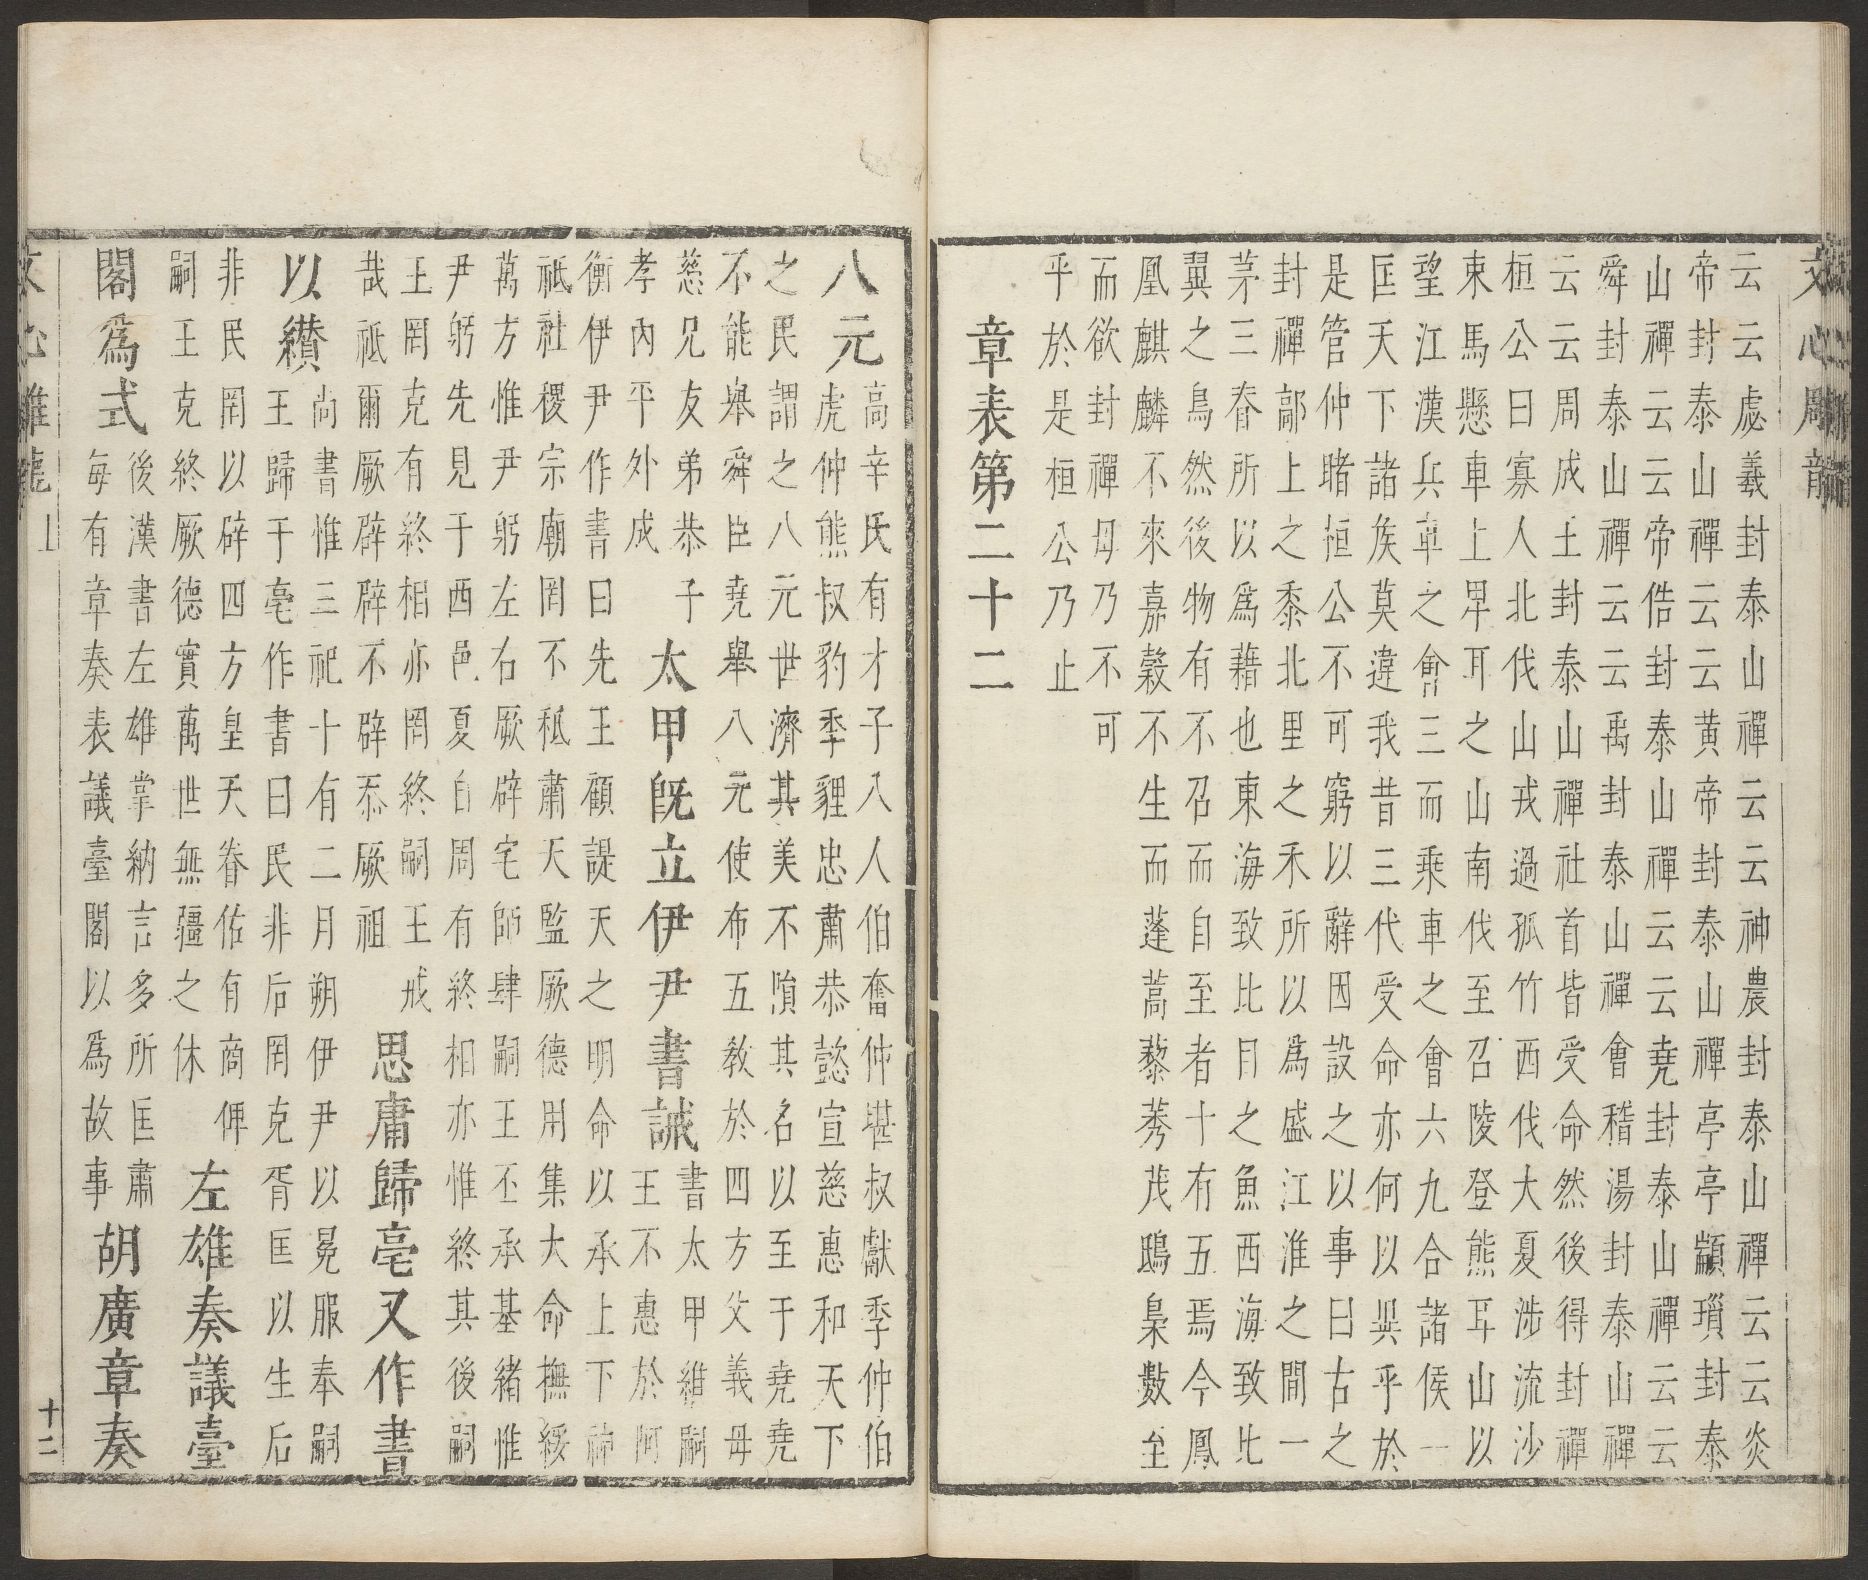 云云虙羲封泰山禪云云神農封泰山禪云云炎
帝封泰山禪云云黃帝封泰山禪亭亭顓瑣封泰
山禪云云帝俈封泰山禪云云堯封泰山禪云云
舜封泰山禪云云禹封泰山禪會稽湯封泰山禪
云云周成王封泰山禪社首皆受命然後得封禪
桓公曰寡人北伐山戎過孤竹西伐大夏涉流沙
束馬懸車上卑耳之山南伐至召陵登熊耳山以
望江漢兵車之會三而乘車之會六九合諸侯一
匡天下諸族莫違我昔三代受命亦何以異乎於
是管仲睹桓公不可窮以辭因設之以事曰古之
封禪鄗上之黍北里之禾所以為盛江淮之間一
茅三脊所以為藉也東海致比目之魚西海致比
翼之鳥然後物有不召而自至者十有五焉今鳳
凰麒麟不來嘉穀不生而蓬蒿藜莠茂鴟梟數至
而欲封禪毋乃不可
乎於是桓公乃止
章表第二十二
八元
高辛氏有才子八人伯奮仲堪叔獻季仲伯
虎仲熊叔豹季貍忠肅恭懿宣慈惠和天下
之民謂之八元世濟其美不隕其名以至于堯堯
不能舉舜臣堯舉八元使布五教於四方父義母
慈兄友弟恭子
孝內平外成
太甲既立伊尹書誡
書太甲維嗣
王不惠於阿
衡伊尹作書曰先王顧諟天之明命以承上下神
祗社稷宗廟罔不秪肅天監厥德用集大命撫綏
萬方惟尹躬左右厥辟宅師肆嗣王丕承基緒惟
尹躬先見于西邑夏自周有終相亦惟終其後嗣
王罔克有終相亦罔終嗣王戒
哉祗爾厥辟辟不辟忝厥祖
思庸歸亳又作書
以纘
尚書惟三祀十有二月朔伊尹以冕服奉嗣
王歸于亳作書曰民非后罔克胥匡以生后
非民罔以辟四方皇天眷佑有商俾
嗣王克終厥德實萬世無疆之休
左雄奏議臺
閣爲式
後漢書左雄掌納言多所匡肅
每有章奏表議臺閣以爲故事
胡廣章奏
文心雕龍
十二